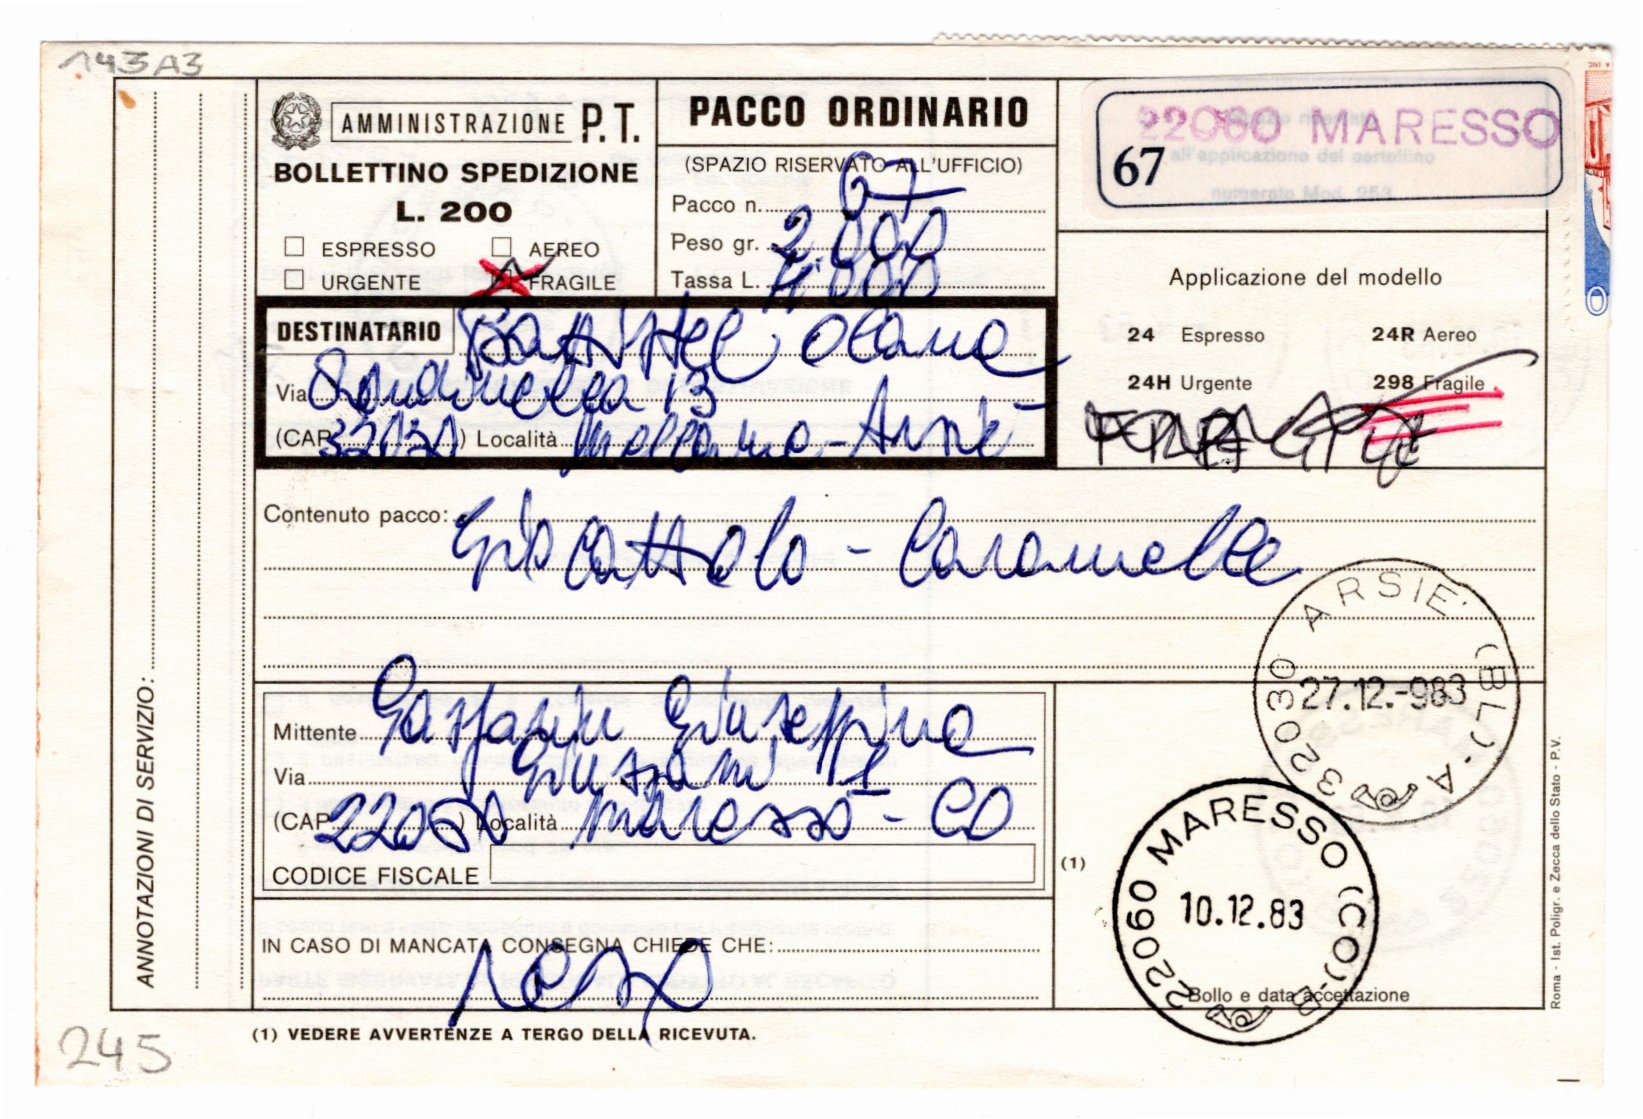 143A3
AMMINISTRAZIONE P.T.
BOLLETTINO SPEDIZIONE
L. 200
ESPRESSO AEREO
URGENTE FRAGILE
PACCO ORDINARIO
(SPAZIO RISERVATO ALL'UFFICIO)
Pacco n. 67
Peso gr. 2.000
Tassa L. 4.000
22060 MARESSO
67
Applicazione del modello
24 Espresso 24R Aereo
24H Urgente 298 Fragile
FRAGILE
DESTINATARIO
Via 13
(CAP 32030) Località Mellame - Arsiè
Contenuto pacco:
Giocattolo - Caramelle
ARSIE' (BL) - A
32030
27.12.-983
Mittente Gasparin Giuseppina
Via Giussani 1
(CAP 22060) Località Maresso - CO
CODICE FISCALE
(1)
22060 MARESSO (CO) - B
10.12.83
Bollo e data accettazione
IN CASO DI MANCATA CONSEGNA CHIEDE CHE:
reso
(1) VEDERE AVVERTENZE A TERGO DELLA RICEVUTA.
ANNOTAZIONI DI SERVIZIO:
Roma - Ist. Poligr. e Zecca dello Stato - P.V.
245